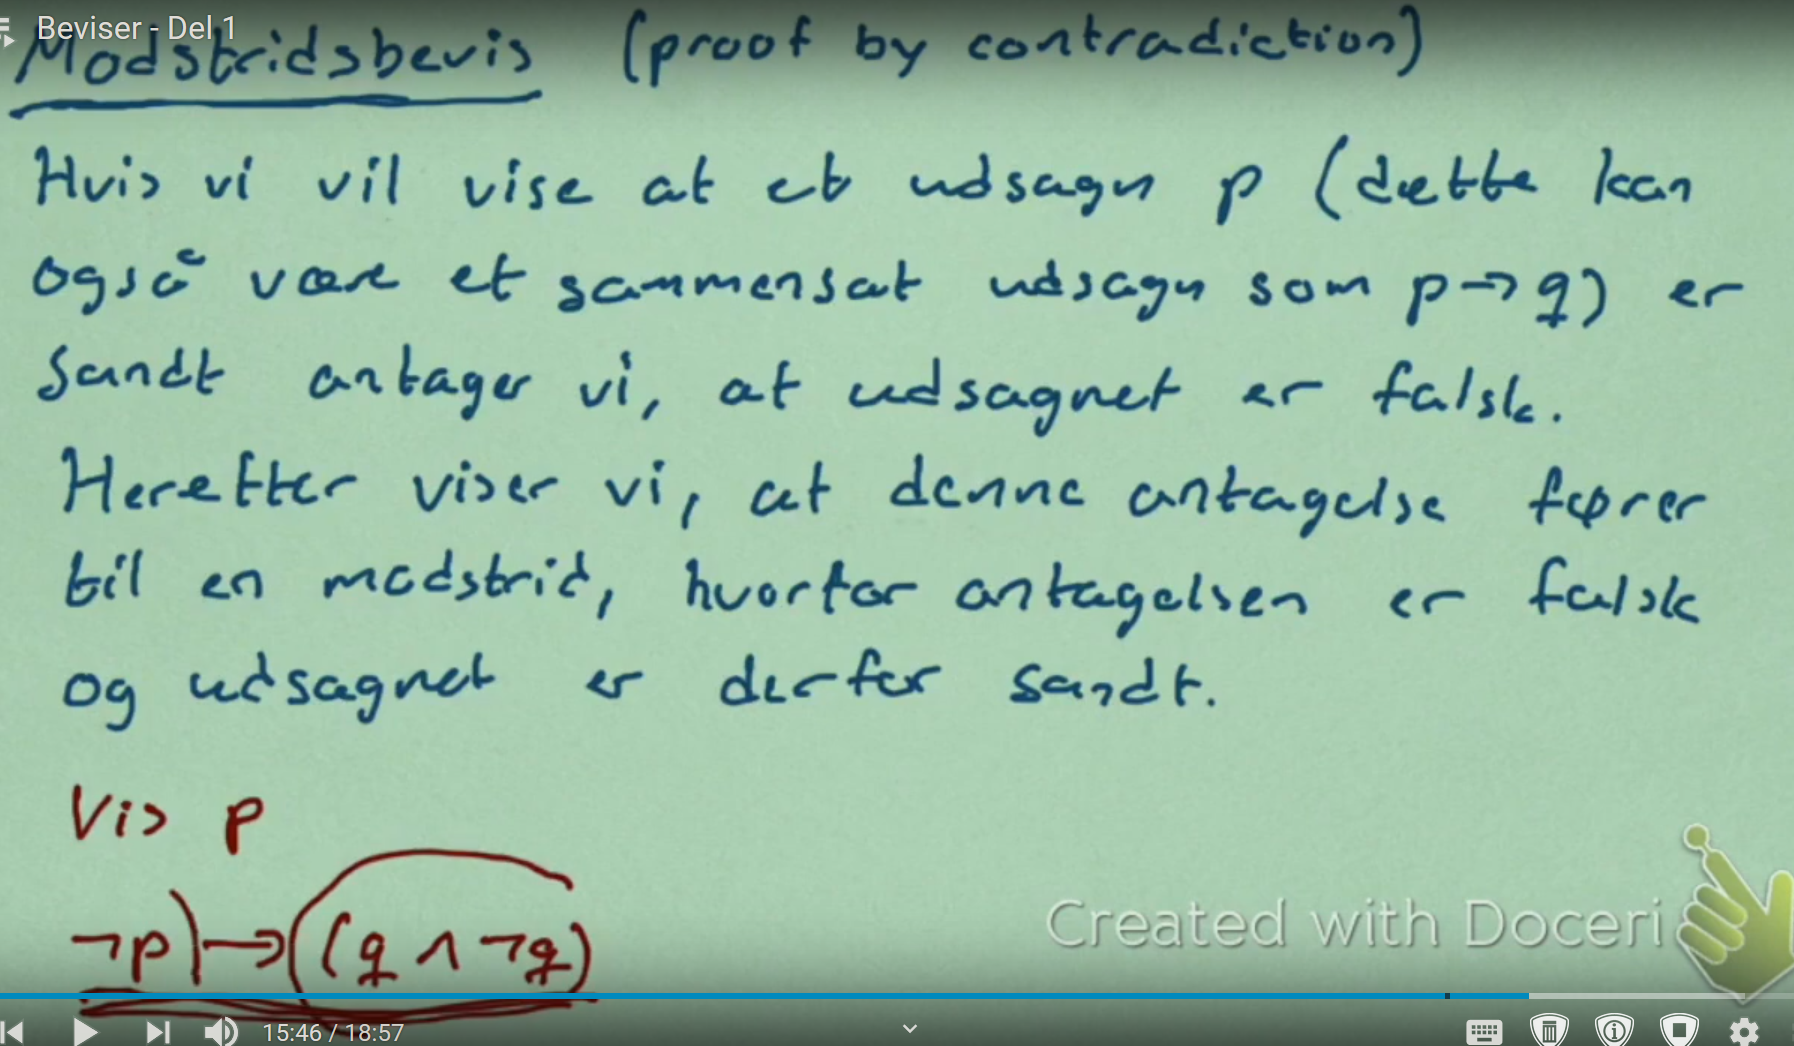 Beviser - Del 1
Modstridsbevis (proof by contradiction)
Hvis vi vil vise at et udsagn p (dette kan
også være et sammensat udsagn som p→q) er
sandt antager vi, at udsagnet er falsk.
Herefter viser vi, at denne antagelse fører
til en modstrid, hvorfor antagelsen er falsk
og udsagnet er derfor sandt.
Vis p
¬p)→(q ∧ ¬q)
Created with Doceri
15:46 / 18:57